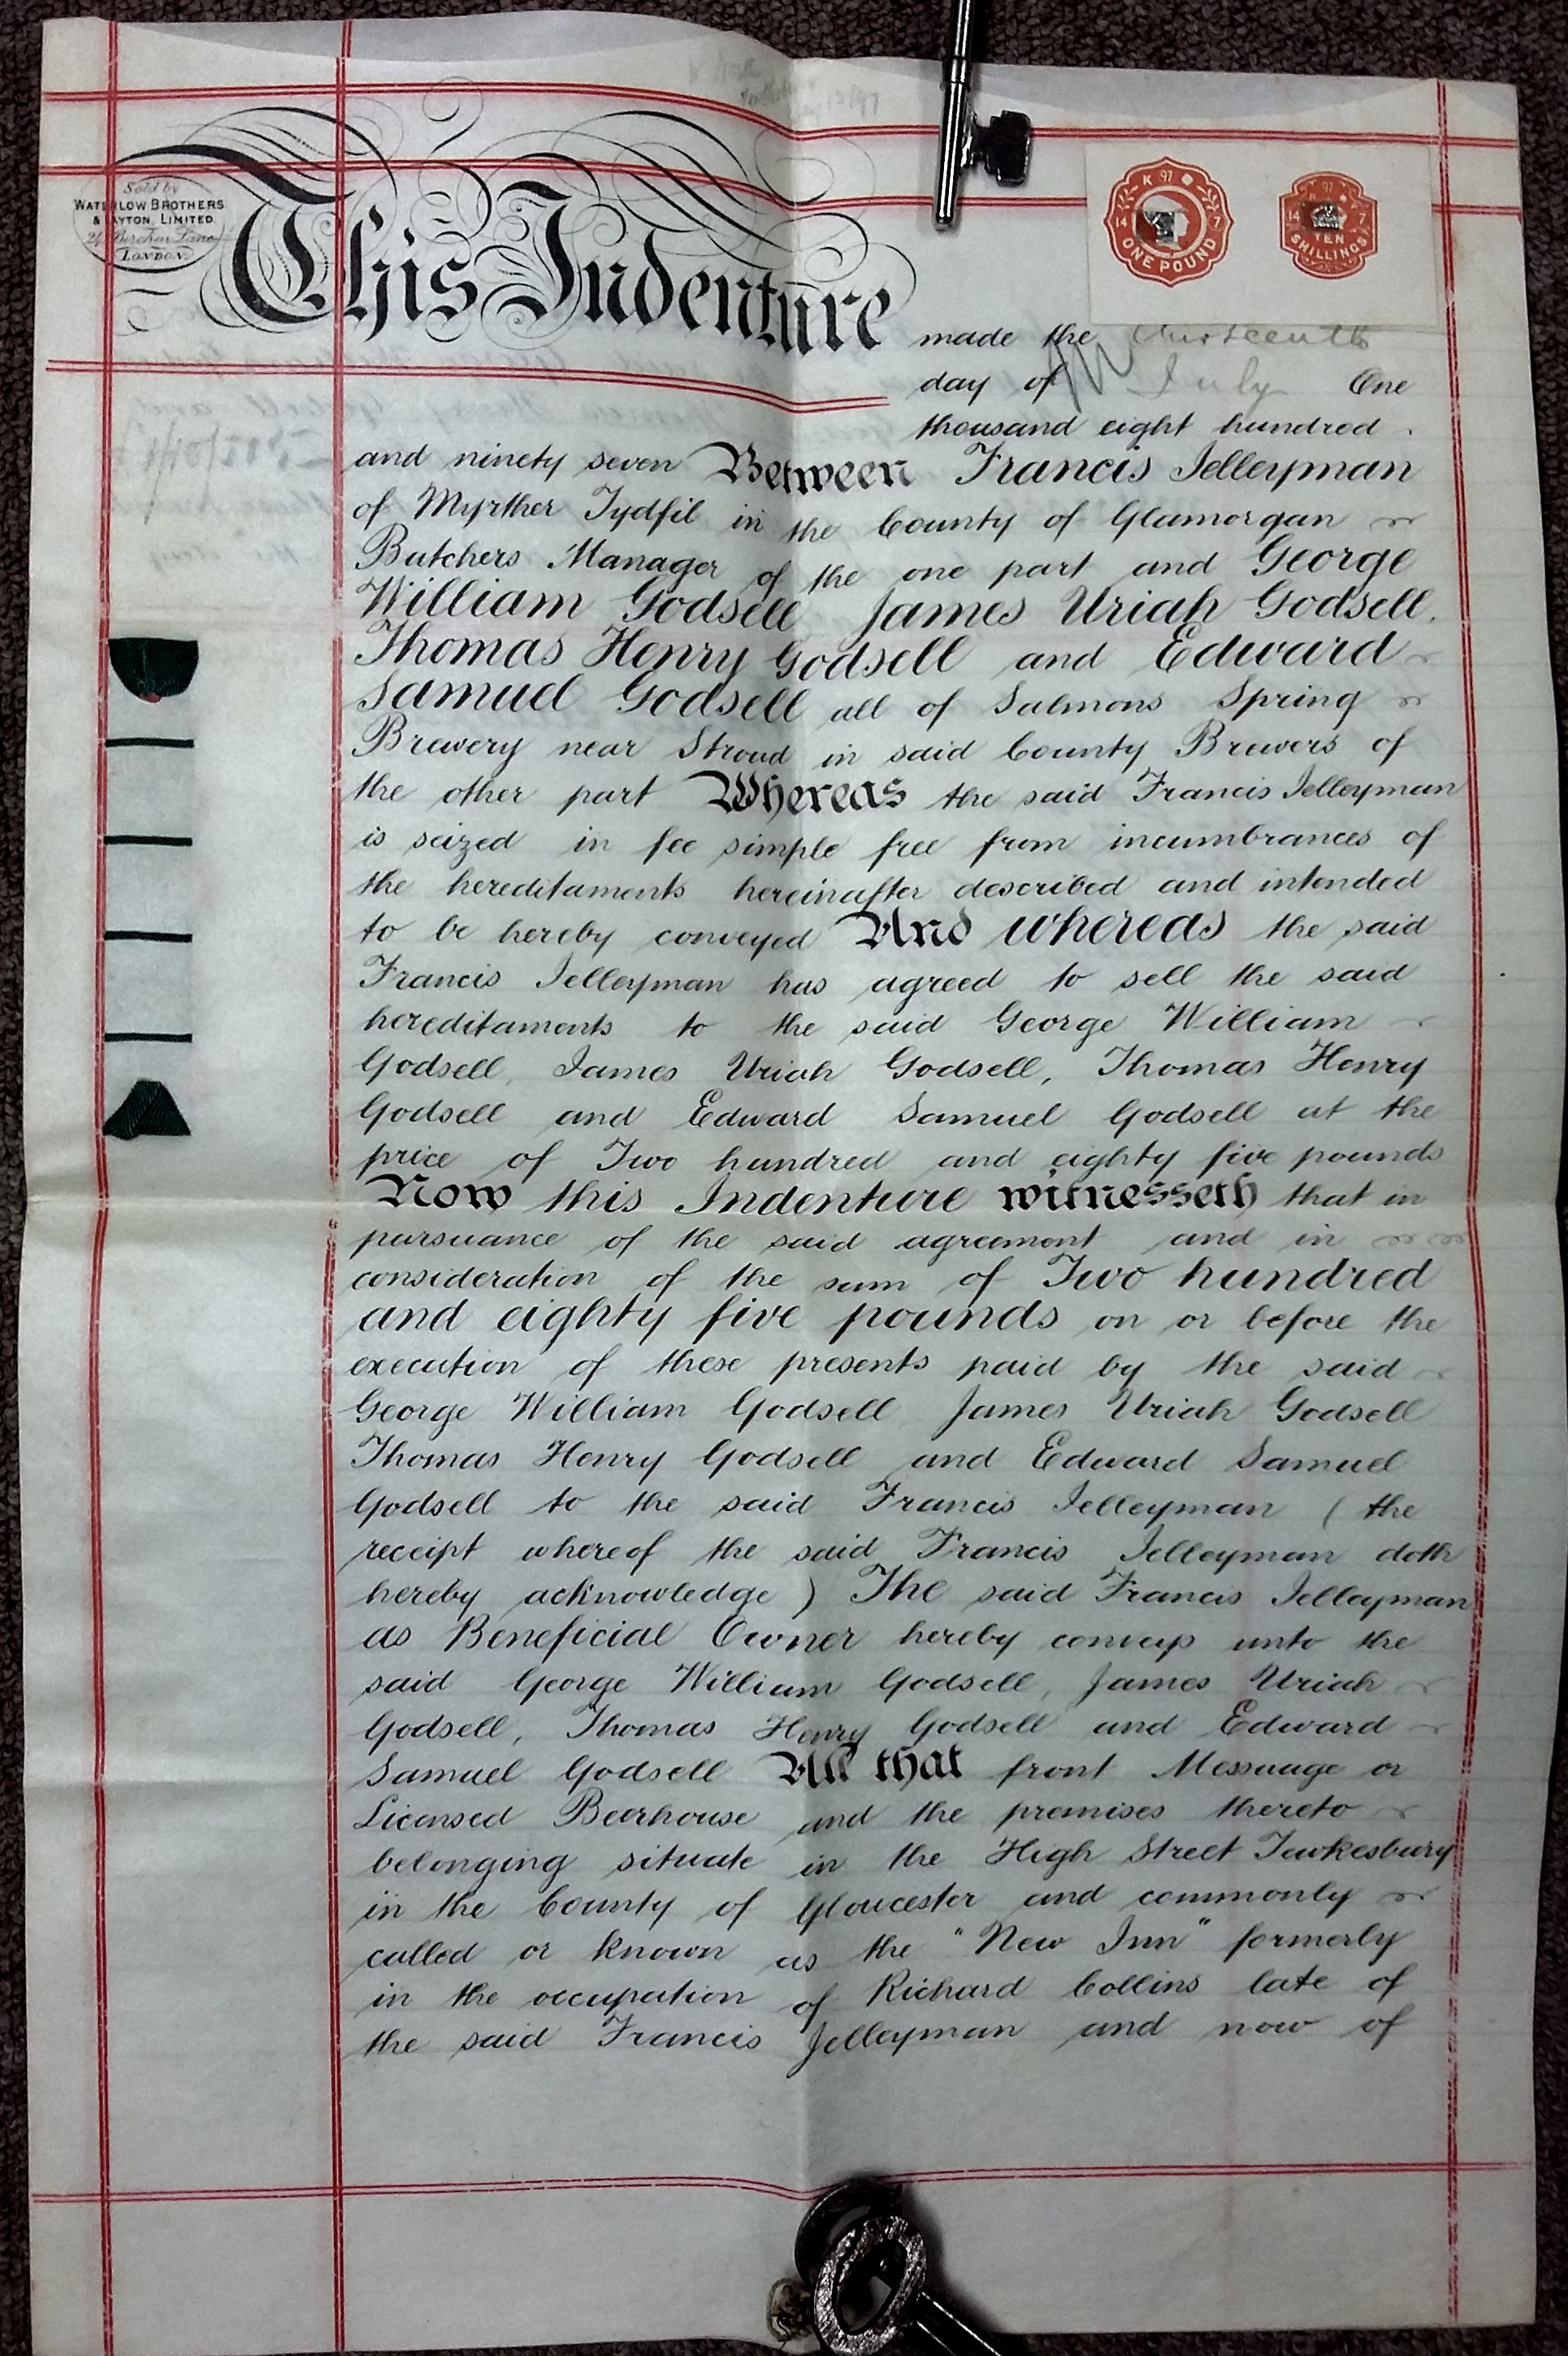 Sold by
WATERLOW BROTHERS
& LAYTON, LIMITED.
24, Birchin Lane
LONDON.
K 97
14 7
ONE POUND
97
14 7
TEN
SHILLINGS
This Indenture made the thirteenth
day of July One
thousand eight hundred
and ninety seven Between Francis Jelleyman
of Myrther Tydfil in the County of Glamorgan
Butchers Manager of the one part and George
William Godsell James Uriah Godsell,
Thomas Henry Godsell and Edward
Samuel Godsell all of Salmons Spring
Brewery near Stroud in said County Brewers of
the other part Whereas the said Francis Jelleyman
is seized in fee simple free from incumbrances of
the hereditaments hereinafter described and intended
to be hereby conveyed And whereas the said
Francis Jelleyman has agreed to sell the said
hereditaments to the said George William
Godsell, James Uriah Godsell, Thomas Henry
Godsell and Edward Samuel Godsell at the
price of Two hundred and eighty five pounds
Now this Indenture witnesseth that in
pursuance of the said agreement and in
consideration of the sum of Two hundred
and eighty five pounds on or before the
execution of these presents paid by the said
George William Godsell James Uriah Godsell
Thomas Henry Godsell and Edward Samuel
Godsell to the said Francis Jelleyman (the
receipt whereof the said Francis Jelleyman doth
hereby acknowledge) The said Francis Jelleyman
as Beneficial Owner hereby conveys unto the
said George William Godsell, James Uriah
Godsell, Thomas Henry Godsell and Edward
Samuel Godsell All that front Messuage or
Licensed Beerhouse and the premises thereto
belonging situate in the High Street Tewkesbury
in the County of Gloucester and commonly
called or known as the "New Inn" formerly
in the occupation of Richard Collins late of
the said Francis Jelleyman and now of